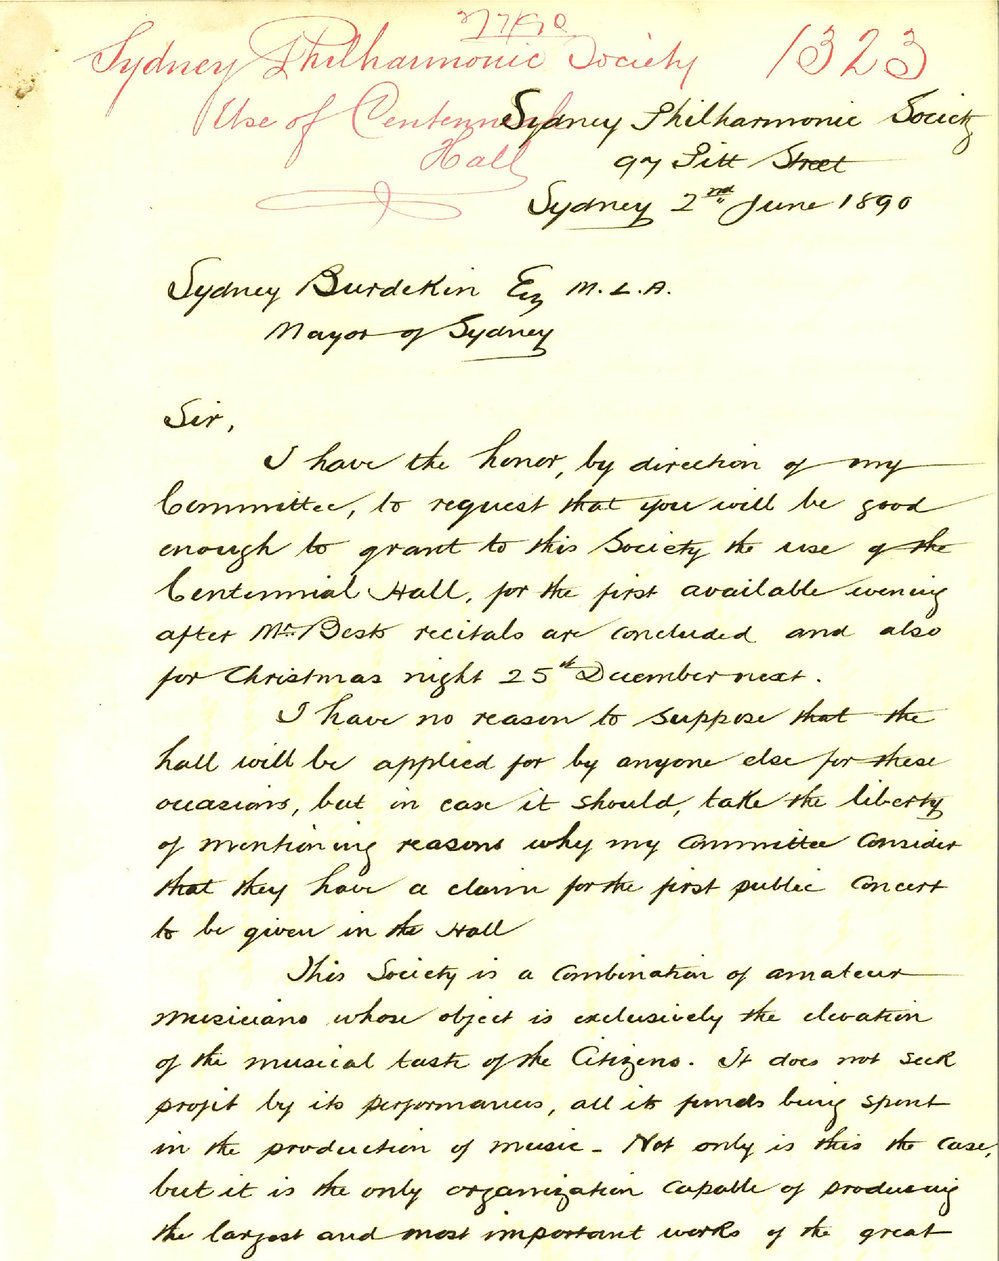 Sydney Philharmonic Society 1323
Use of Centennial
Hall
Sydney Philharmonic Society
97 Pitt Street
Sydney 2nd June 1890
Sydney Burdekin Esq M.L.A.
Mayor of Sydney
Sir,
I have the honor, by direction of my
Committee, to request that you will be good
enough to grant to this Society the use of the
Centennial Hall, for the first available evening
after Mr. Bests recitals are concluded and also
for Christmas night 25th December next.
I have no reason to suppose that the
hall will be applied for by anyone else for these
occasions, but in case it should, take the liberty
of mentioning reasons why my Committee consider
that they have a claim for the first public concert
to be given in the Hall
This Society is a combination of amateur
musicians whose object is exclusively the elevation
of the musical taste of the Citizens. It does not seek
profit by its performances, all its funds being spent
in the production of music - Not only is this the case,
but it is the only organization capable of producing
the largest and most important works of the great